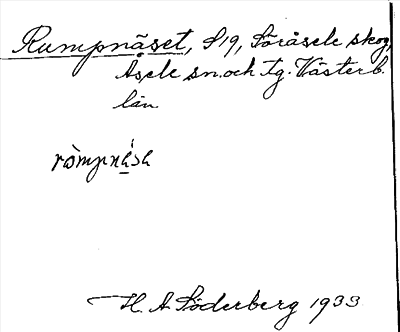 Rumpnäset, S19, Söråsele skog,
Åsele sn. och tg. Västerb.
län
H. A. Söderberg 1933